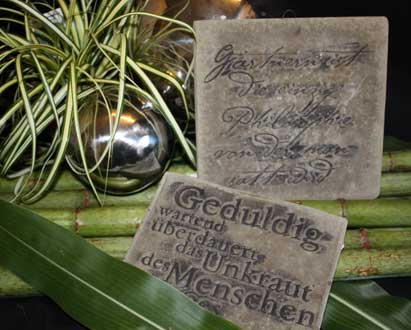 Gärtnern ist
die einzige
Philosophie
von der man
satt wird
Geduldig,
wartend
überdauert
das Unkraut
des Menschen